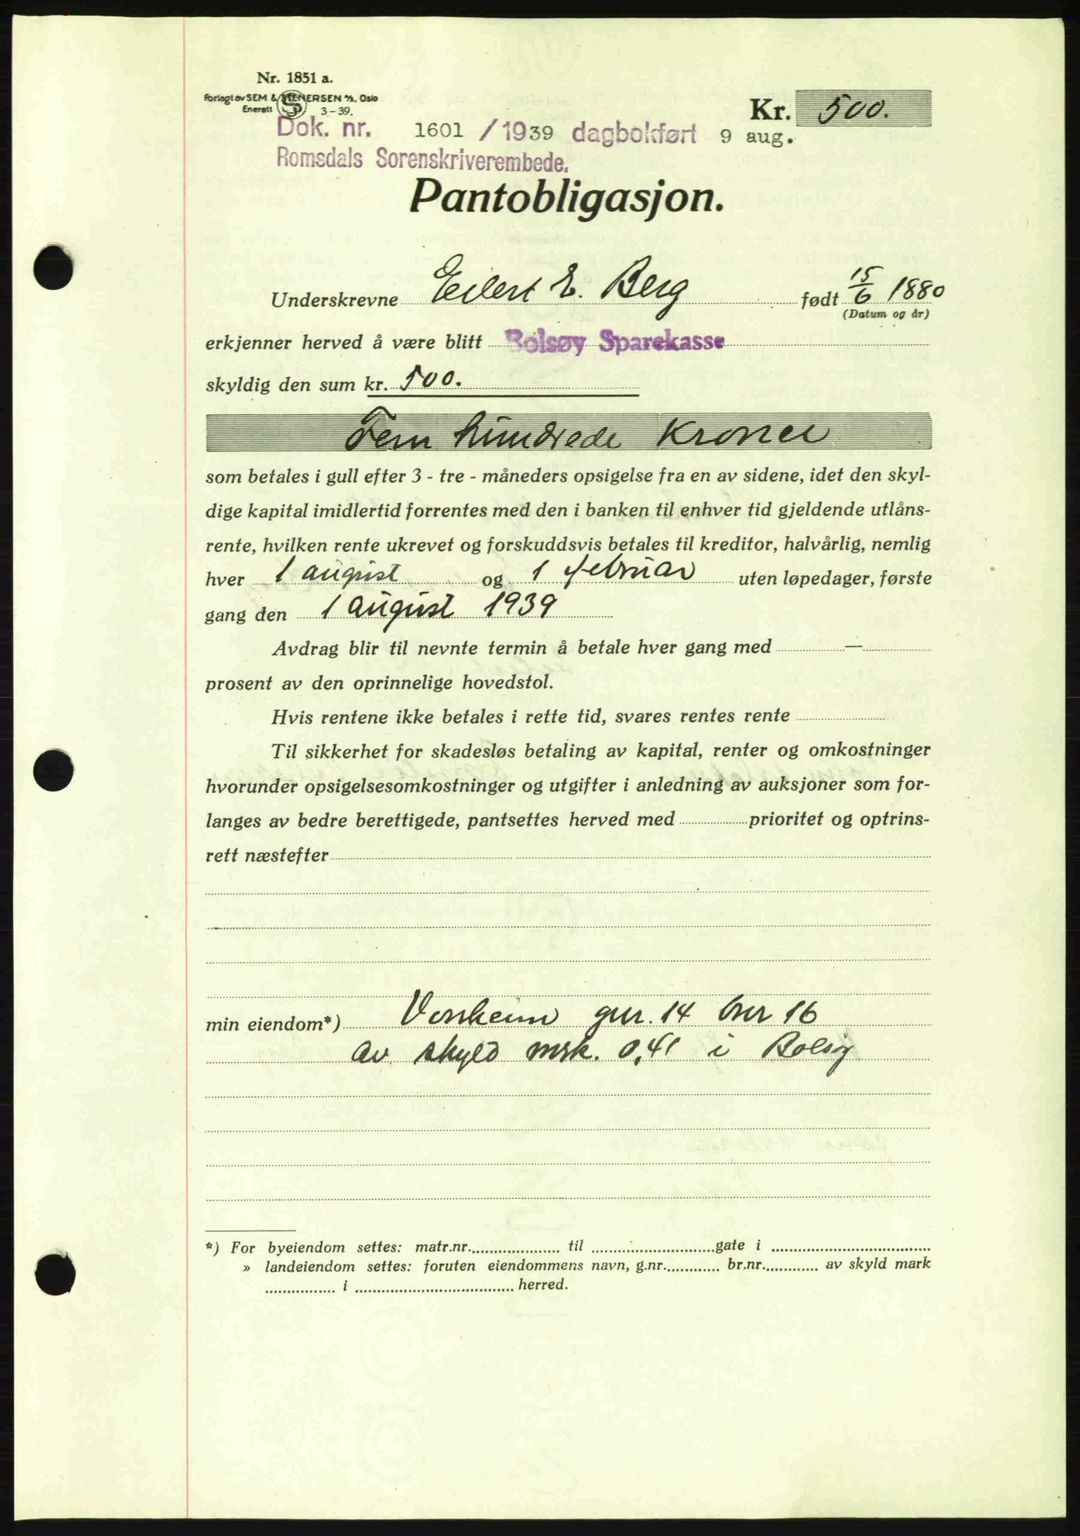 Nr. 1851 a.
Forlagt av SEM & STENERSEN A/S, Oslo
Enerett S 3-39.
Kr. 500.
Dok. nr. 1601 /1939 dagbokført 9 aug.
Romsdals Sorenskriverembede.
Pantobligasjon.
Underskrevne Eilert E. Berg født 15/6 1880
(Datum og år)
erkjenner herved å være blitt Bolsøy Sparekasse
skyldig den sum kr. 500.
Fem hundrede Kroner
som betales i gull efter 3 - tre - måneders opsigelse fra en av sidene, idet den skyl-
dige kapital imidlertid forrentes med den i banken til enhver tid gjeldende utlåns-
rente, hvilken rente ukrevet og forskuddsvis betales til kreditor, halvårlig, nemlig
hver 1 august og 1 februar uten løpedager, første
gang den 1 august 1939
Avdrag blir til nevnte termin å betale hver gang med —
prosent av den oprinnelige hovedstol.
Hvis rentene ikke betales i rette tid, svares rentes rente
Til sikkerhet for skadesløs betaling av kapital, renter og omkostninger
hvorunder opsigelsesomkostninger og utgifter i anledning av auksjoner som for-
langes av bedre berettigede, pantsettes herved med prioritet og optrins-
rett næstefter
min eiendom*) gnr. 14 bnr 16
av skyld mrk. 0,41 i Bolsøy
*) For byeiendom settes: matr.nr. til gate i
» landeiendom settes: foruten eiendommens navn, g.nr. br.nr. av skyld mark
i herred.